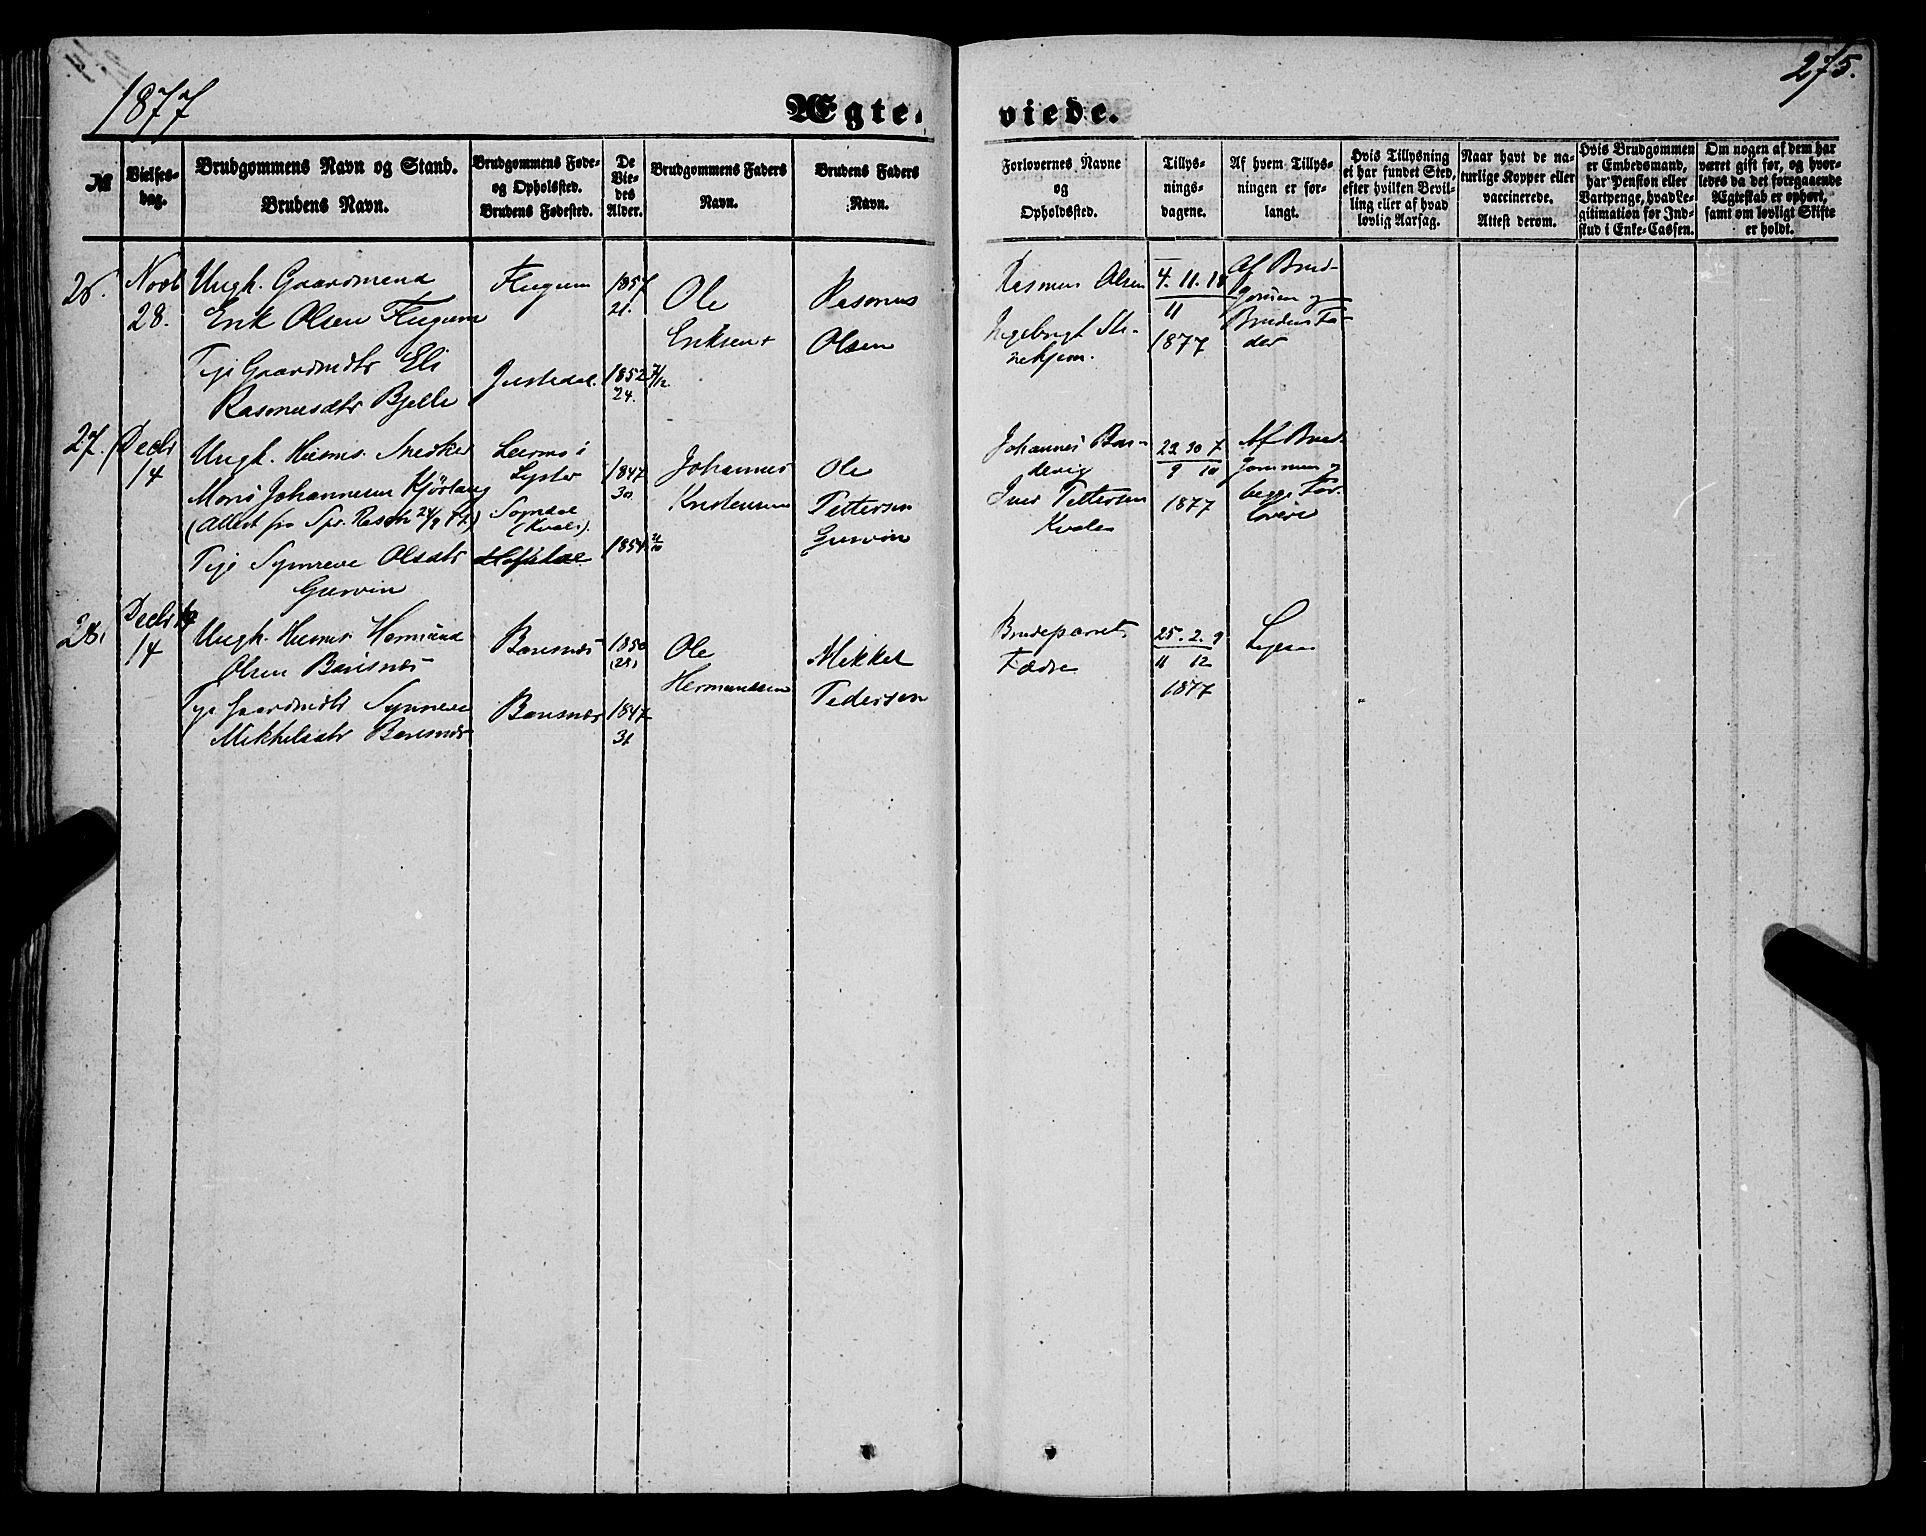 1877
275.
Ægteviede.
№
Vielses-
dag.
Brudgommens Navn og Stand.
Brudens Navn.
Brudgommens Føde-
og Opholdssted.
Brudens Fødested.
De
Vie-
des
Alder.
Brudgommens Faders
Navn.
Brudens Faders
Navn.
Forlovernes Navne
og
Opholdssted.
Tillys-
nings-
dagene.
Af hvem Tillys-
ningen er for-
langt.
Hvis Tillysning
ei har fundet Sted,
efter hvilken Bevil-
ling eller af hvad
lovlig Aarsag.
Naar havt de na-
turlige Kopper eller
vaccinerede.
Attest derom.
Hvis Brudgommen
er Embedsmand,
har Pension eller
Vartpenge, hvad Le-
gitimation for Ind-
skud i Enke-Cassen.
Om nogen af dem har
været gift før, og hvor-
ledes da det foregaaende
Ægteskab er ophørt,
samt om lovligt Skifte
er holdt.
Novb
28.
Ungk. Gaardmand
Erik Olsen Flugum
Pige Gaardmdtr Eli
Rasmusdtr Bjelle
Flugum
Justedal.
21.
1852
24.
Ole
Eriksen
Rasmus
Olsen
Rasmus Olsen
Ingebrigt
4. 11. 18
11
1877
Af Brud-
gommen og
Brudens Fa-
der
27.
Decbr
14
Ungk. Husms.
Johannesen
(Attest fra Spr. Rasch 24/9 77)
Pige Synneve Olsdtr
Gurvin
i
Lyster
Sogndal
1847
30
1854
Johannes
Kristensen
Ole
Pettersen
Gurvin
Johannes
Iver Pettersen
Kvale
23 30 7
9 10
1877
Af Brud-
gommen og
begge For-
lovere
28.
Decbr
14
Ungk. Husms. Hermund
Olsen Barsnæs
Pige Gaardmdtr Synneve
Mikkelsdtr Barsnæs
Barsnæs
Barsnæs
1850
1847
31
Ole
Hermundsen
Mikkel
Pedersen
Brudeparrets
Fædre
25. 2. 9
11 12
1877
Ligesaa